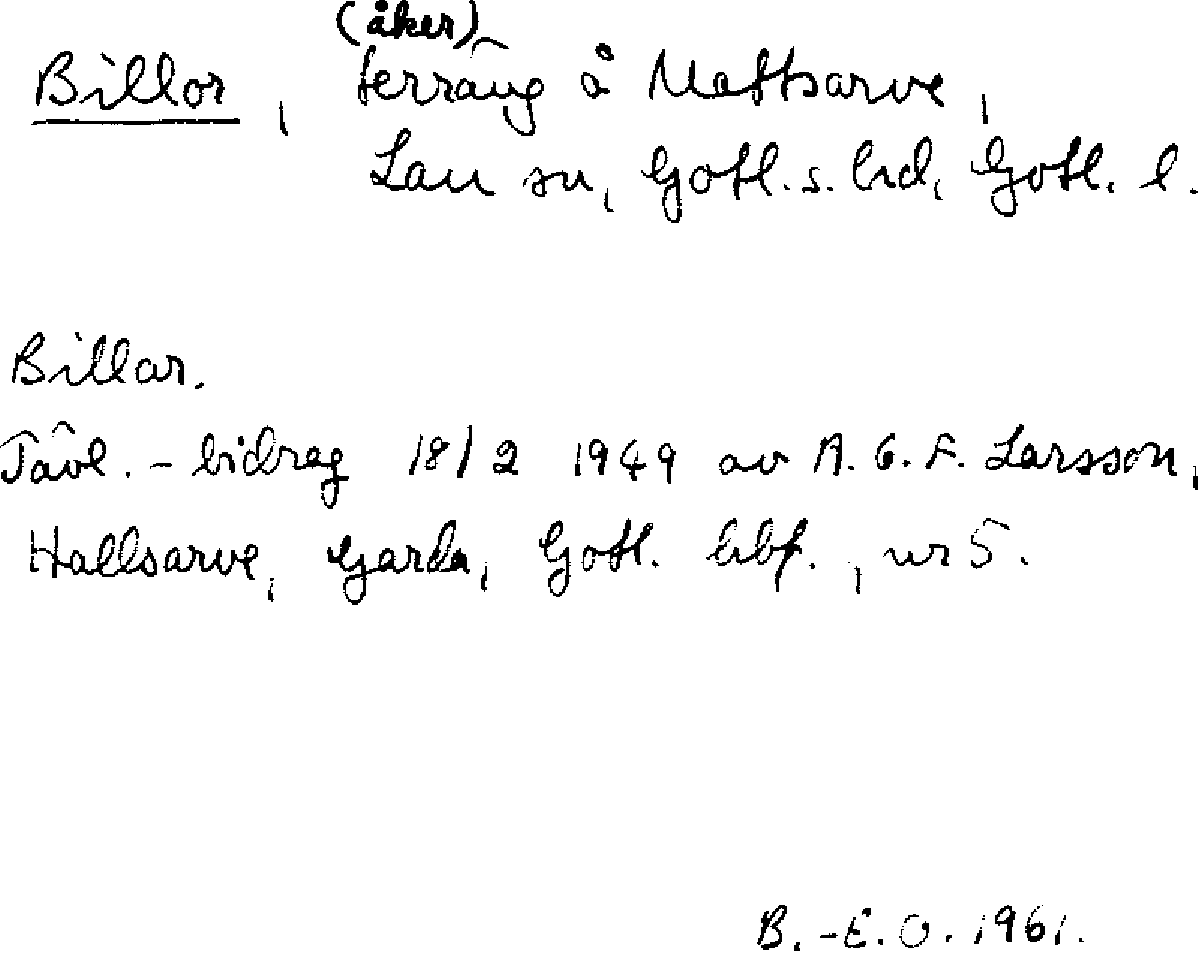 (åker)
Billor, terräng å Mattsarve,
Lau sn, Gotl. s. hd, Gotl. l.
Billar.
Tävl.-bidrag 18/2 1949 av A. G. F. Larsson,
Hallsarve, Garda, Gotl. hbf., nr 5.
B.-E. O. 1961.